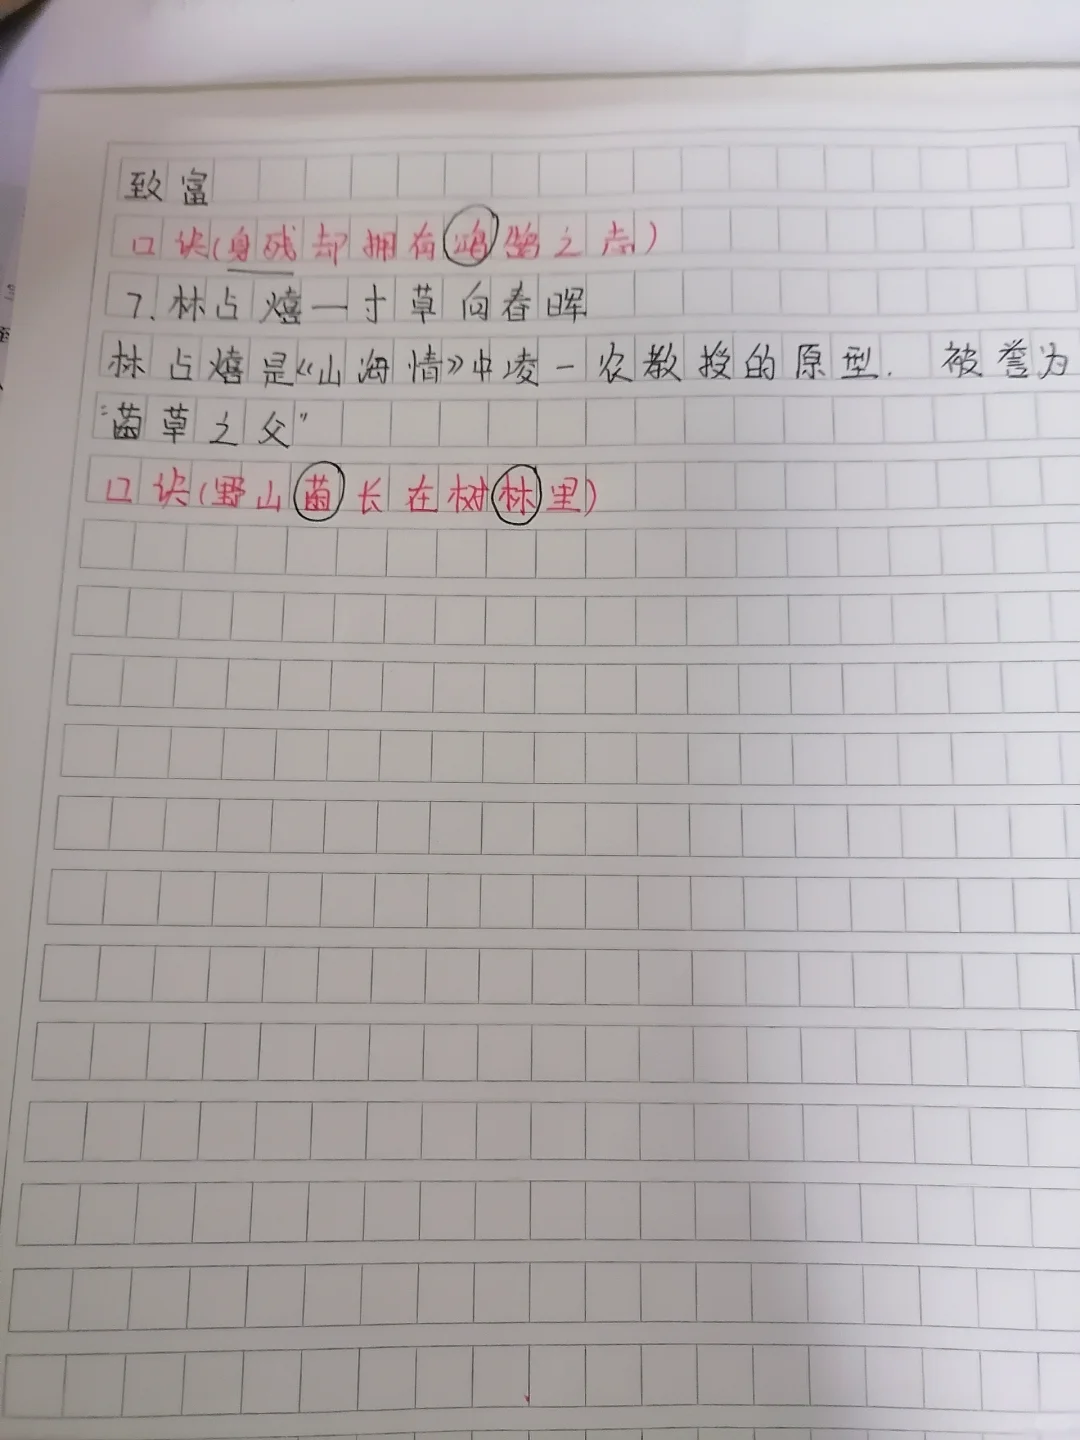 致富
口诀(身残却拥有鸿鹄之志)
7.林占熺一寸草向春晖
林占熺是《山海情》中凌一农教授的原型.被誉为
"菌草之父"
口诀(野山菌长在树林里)